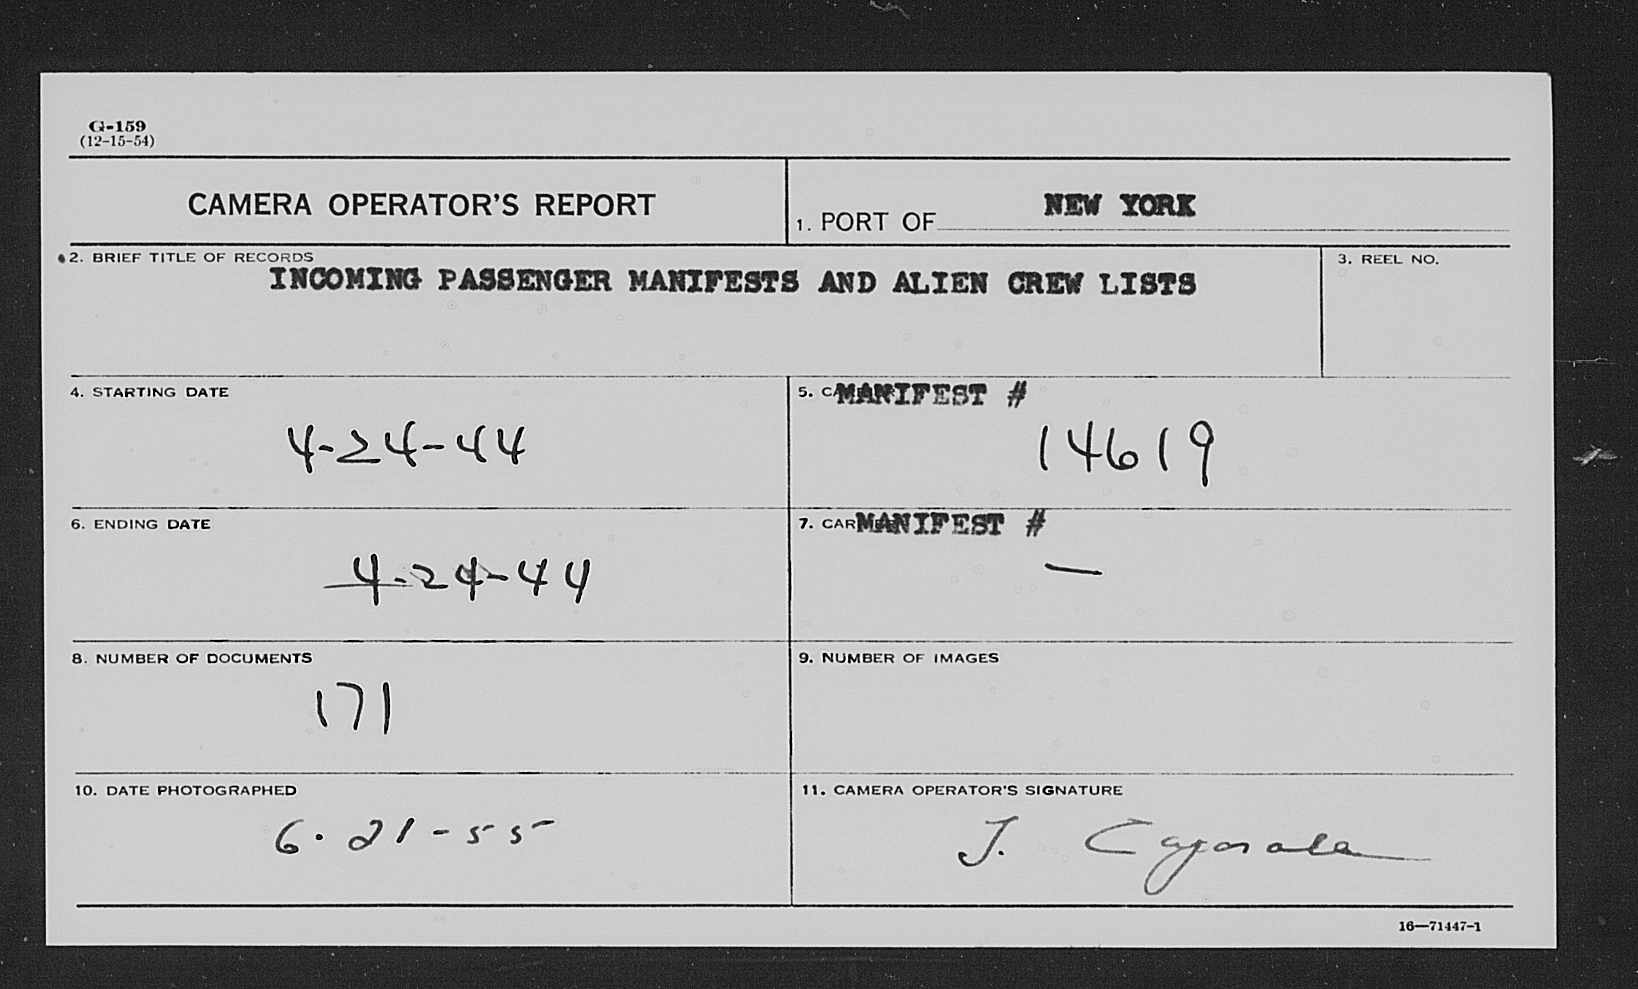 G-159
(12-15-54)
CAMERA OPERATOR'S REPORT
1. PORT OF NEW YORK
2. BRIEF TITLE OF RECORDS
INCOMING PASSENGER MANIFESTS AND ALIEN CREW LISTS
3. REEL NO.
4. STARTING DATE
4-24-44
5. MANIFEST #
14619
6. ENDING DATE
4-24-44
7. CAR MANIFEST #
—
8. NUMBER OF DOCUMENTS
171
9. NUMBER OF IMAGES
10. DATE PHOTOGRAPHED
6-21-55
11. CAMERA OPERATOR'S SIGNATURE
J.
16—71447-1